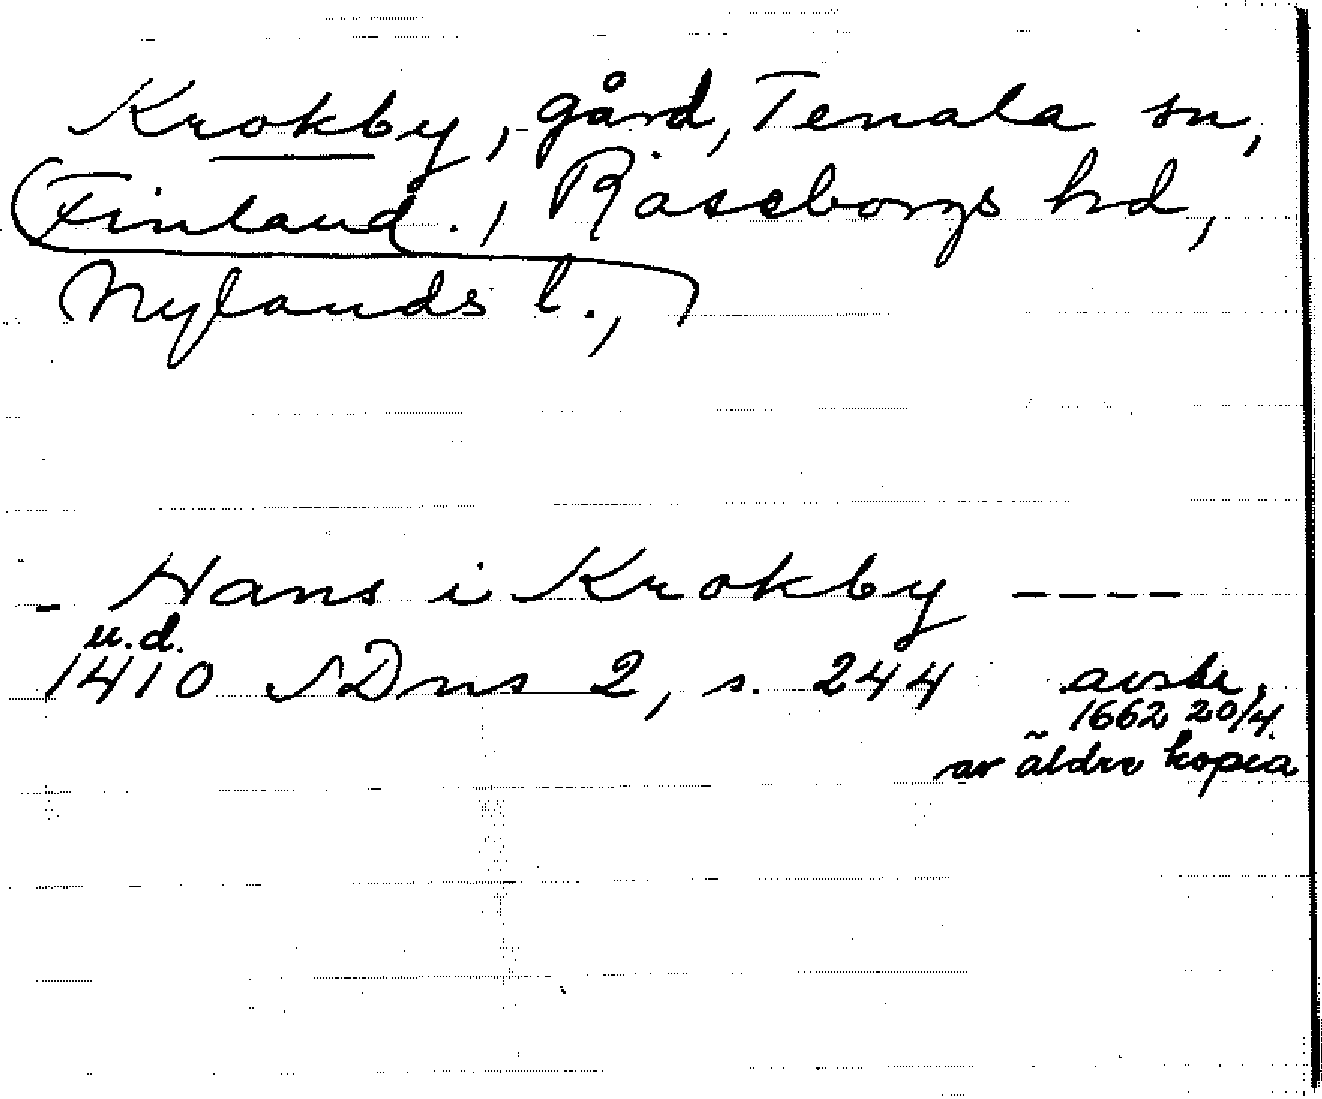 Krokby, gård, Tenala sn,
Finland., Raseborgs hd,
Nylands l.,
- Hans i Krokby ----
u.d.
1410 SDns 2, s. 244 avskr.
1662 20/4.
av äldre kopia